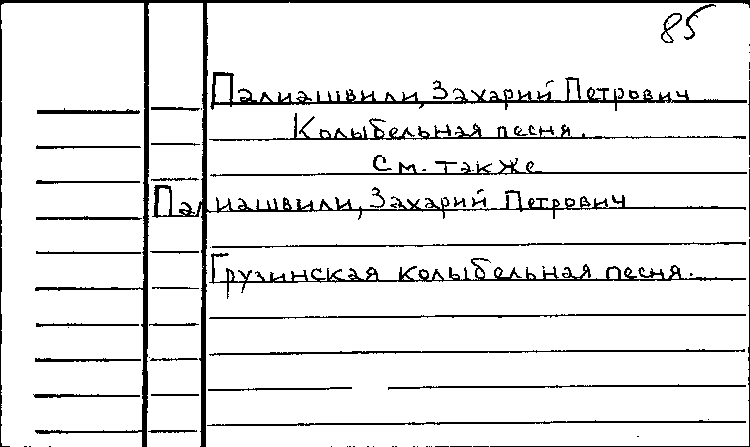 85
Палиашвили, Захарий Петрович
Колыбельная песня.
См. также
Палиашвили, Захарий Петрович
Грузинская колыбельная песня.